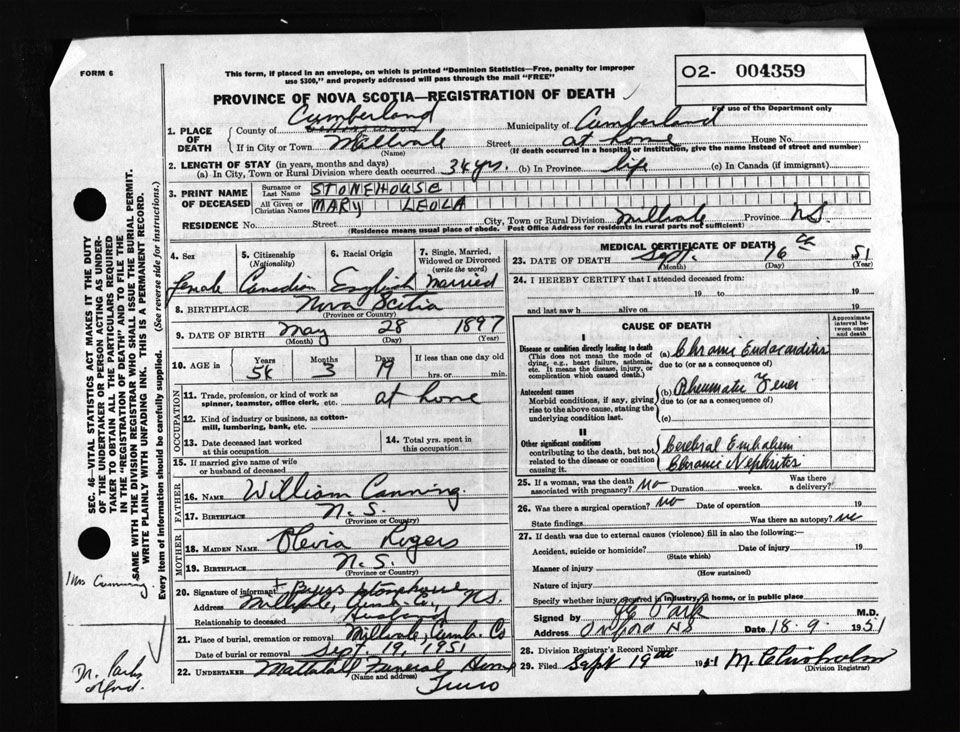 FORM 6
This form, if placed in an envelope, on which is printed "Dominion Statistics—Free, penalty for improper
use $300," and properly addressed will pass through the mail "FREE"
O2- 004359
For use of the Department only
PROVINCE OF NOVA SCOTIA—REGISTRATION OF DEATH
1. PLACE OF DEATH
County of Cumberland Municipality of Cumberland
If in City or Town Millvale Street at home House No.
(Name) (If death occurred in a hospital or institution, give the name instead of street and number)
2. LENGTH OF STAY (in years, months and days)
(a) In City, Town or Rural Division where death occurred 34 yrs. (b) In Province life (c) In Canada (if immigrant)
3. PRINT NAME OF DECEASED
Surname or Last Name STONEHOUSE
All Given or Christian Names MARY LEOLA
RESIDENCE No. Street City, Town or Rural Division Millvale Province NS
(Residence means usual place of abode. Post Office Address for residents in rural parts not sufficient)
4. Sex 5. Citizenship (Nationality) 6. Racial Origin 7. Single, Married, Widowed or Divorced (write the word)
female Canadian English Married
8. BIRTHPLACE Nova Scotia
(Province or Country)
9. DATE OF BIRTH May 28 1897
(Month) (Day) (Year)
10. AGE in Years 54 Months 3 Days 19 If less than one day old
hrs. or min.
OCCUPATION
11. Trade, profession, or kind of work as spinner, teamster, office clerk, etc. at home
12. Kind of industry or business, as cotton-mill, lumbering, bank, etc.
13. Date deceased last worked at this occupation
14. Total yrs. spent in this occupation
15. If married give name of wife or husband of deceased
FATHER
16. NAME William Canning
17. BIRTHPLACE N.S.
(Province or Country)
MOTHER
18. MAIDEN NAME Olevia Rogers
19. BIRTHPLACE N.S.
(Province or Country)
20. Signature of informant Stonehouse
Address Millvale, Cumb. Co., NS.
Relationship to deceased Husband
21. Place of burial, cremation or removal Millvale, Cumb. Co
Date of burial or removal Sept. 19, 1951
22. UNDERTAKER Mattatall Funeral Home
(Name and address) Truro
MEDICAL CERTIFICATE OF DEATH
23. DATE OF DEATH Sept. 16th 51
(Month) (Day) (Year)
24. I HEREBY CERTIFY that I attended deceased from:
19 to 19
and last saw h alive on 19
CAUSE OF DEATH
Approximate interval between onset and death
I
Disease or condition directly leading to death
(This does not mean the mode of dying, e.g., heart failure, asthenia, etc. It means the disease, injury, or complication which caused death.)
(a) Chronic Endocarditis
due to (or as a consequence of)
Antecedent causes
Morbid conditions, if any, giving rise to the above cause, stating the underlying condition last.
(b) Rheumatic Fever
due to (or as a consequence of)
(c)
II
Other significant conditions contributing to the death, but not related to the disease or condition causing it.
Cerebral Embolism
Chronic Nephritis
25. If a woman, was the death associated with pregnancy? No Duration weeks. Was there a delivery?
26. Was there a surgical operation? No Date of operation 19
State findings Was there an autopsy? no
27. If death was due to external causes (violence) fill in also the following:—
Accident, suicide or homicide? Date of injury 19
(State which)
Manner of injury
(How sustained)
Nature of injury
Specify whether injury occurred in industry, in home, or in public place
Signed by Park M.D.
Address Oxford NS Date 18-9- 1951
28. Division Registrar's Record Number
29. Filed Sept 19th 1951 M. Chisholm
(Division Registrar)
SEC. 46—VITAL STATISTICS ACT MAKES IT THE DUTY
OF THE UNDERTAKER OR PERSON ACTING AS UNDER-
TAKER TO OBTAIN ALL THE PARTICULARS REQUIRED
IN THE "REGISTRATION OF DEATH" AND TO FILE THE
SAME WITH THE DIVISION REGISTRAR WHO SHALL ISSUE THE BURIAL PERMIT.
WRITE PLAINLY WITH UNFADING INK. THIS IS A PERMANENT RECORD.
Every item of information should be carefully supplied. (See reverse side for instructions.)
Mrs Canning.
Dr. Park
Oxford.